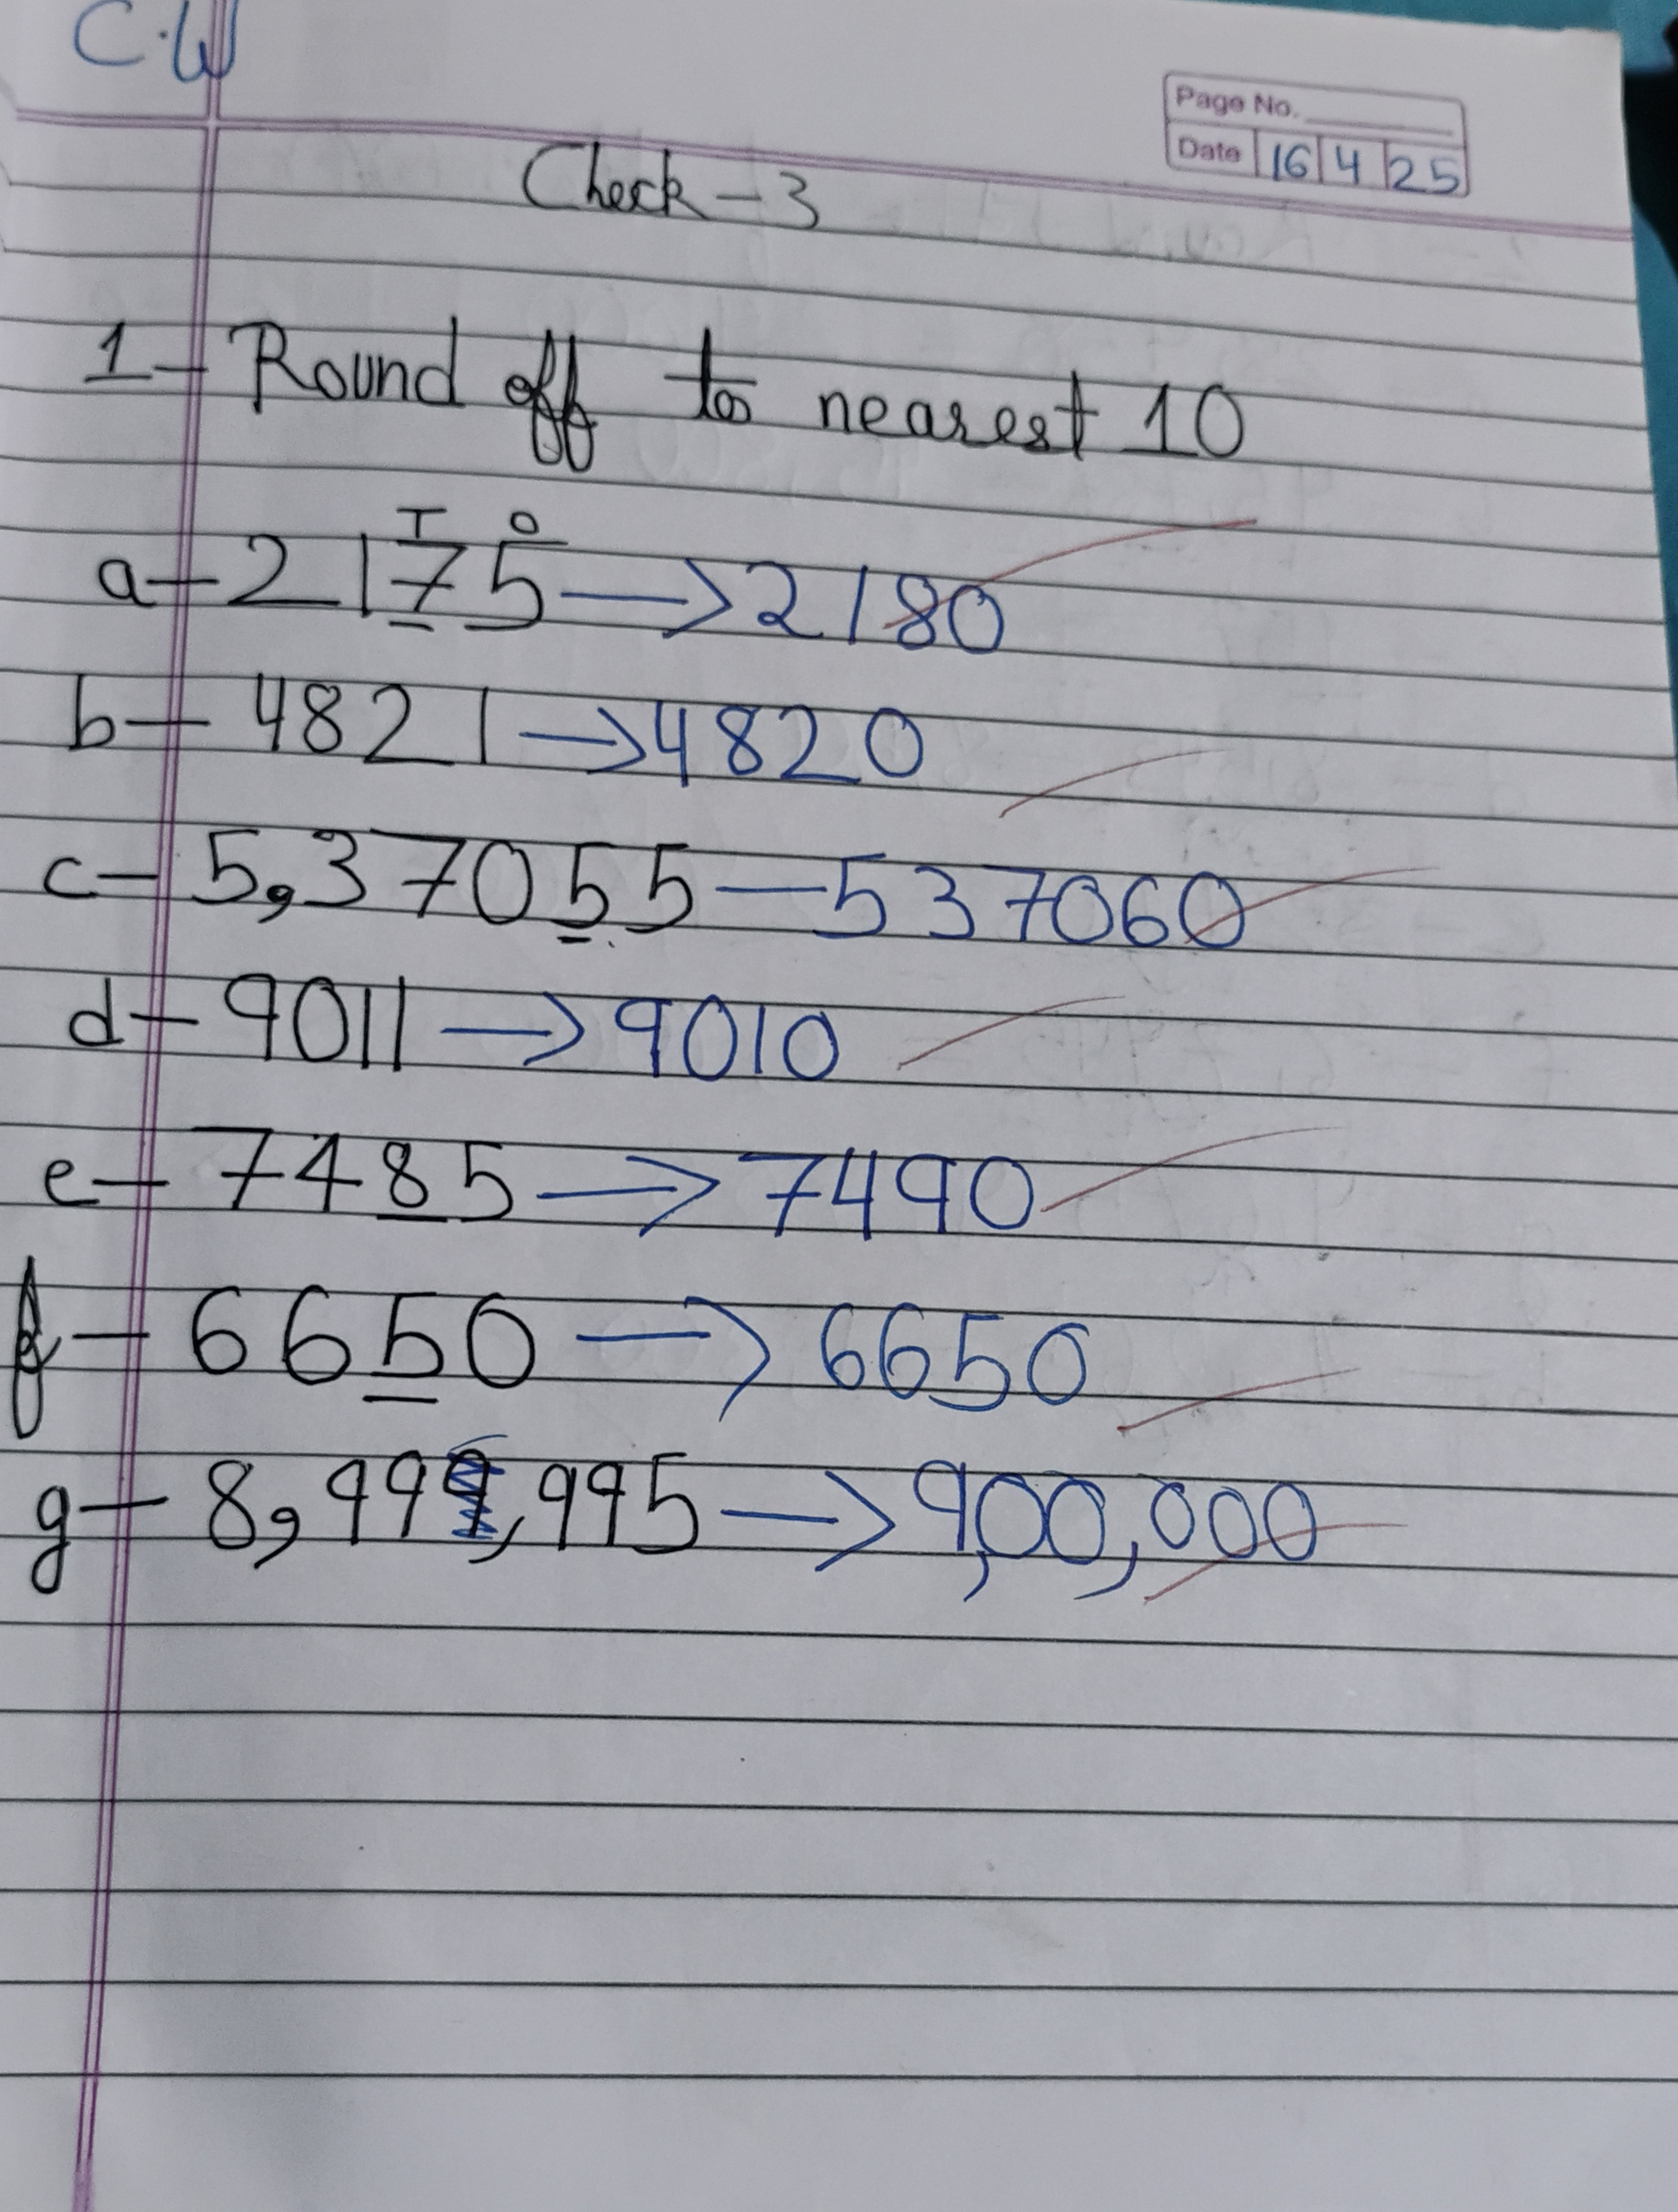 C.W
Page No.
Date 16 4 25
Check - 3
1- Round off to nearest 10
T O
a- 2175 → 2180
b- 4821 → 4820
c- 5,37055 — 537060
d- 9011 → 9010
e- 7485 → 7490
f- 6650 → 6650
g- 8,99,995 → 9,00,000